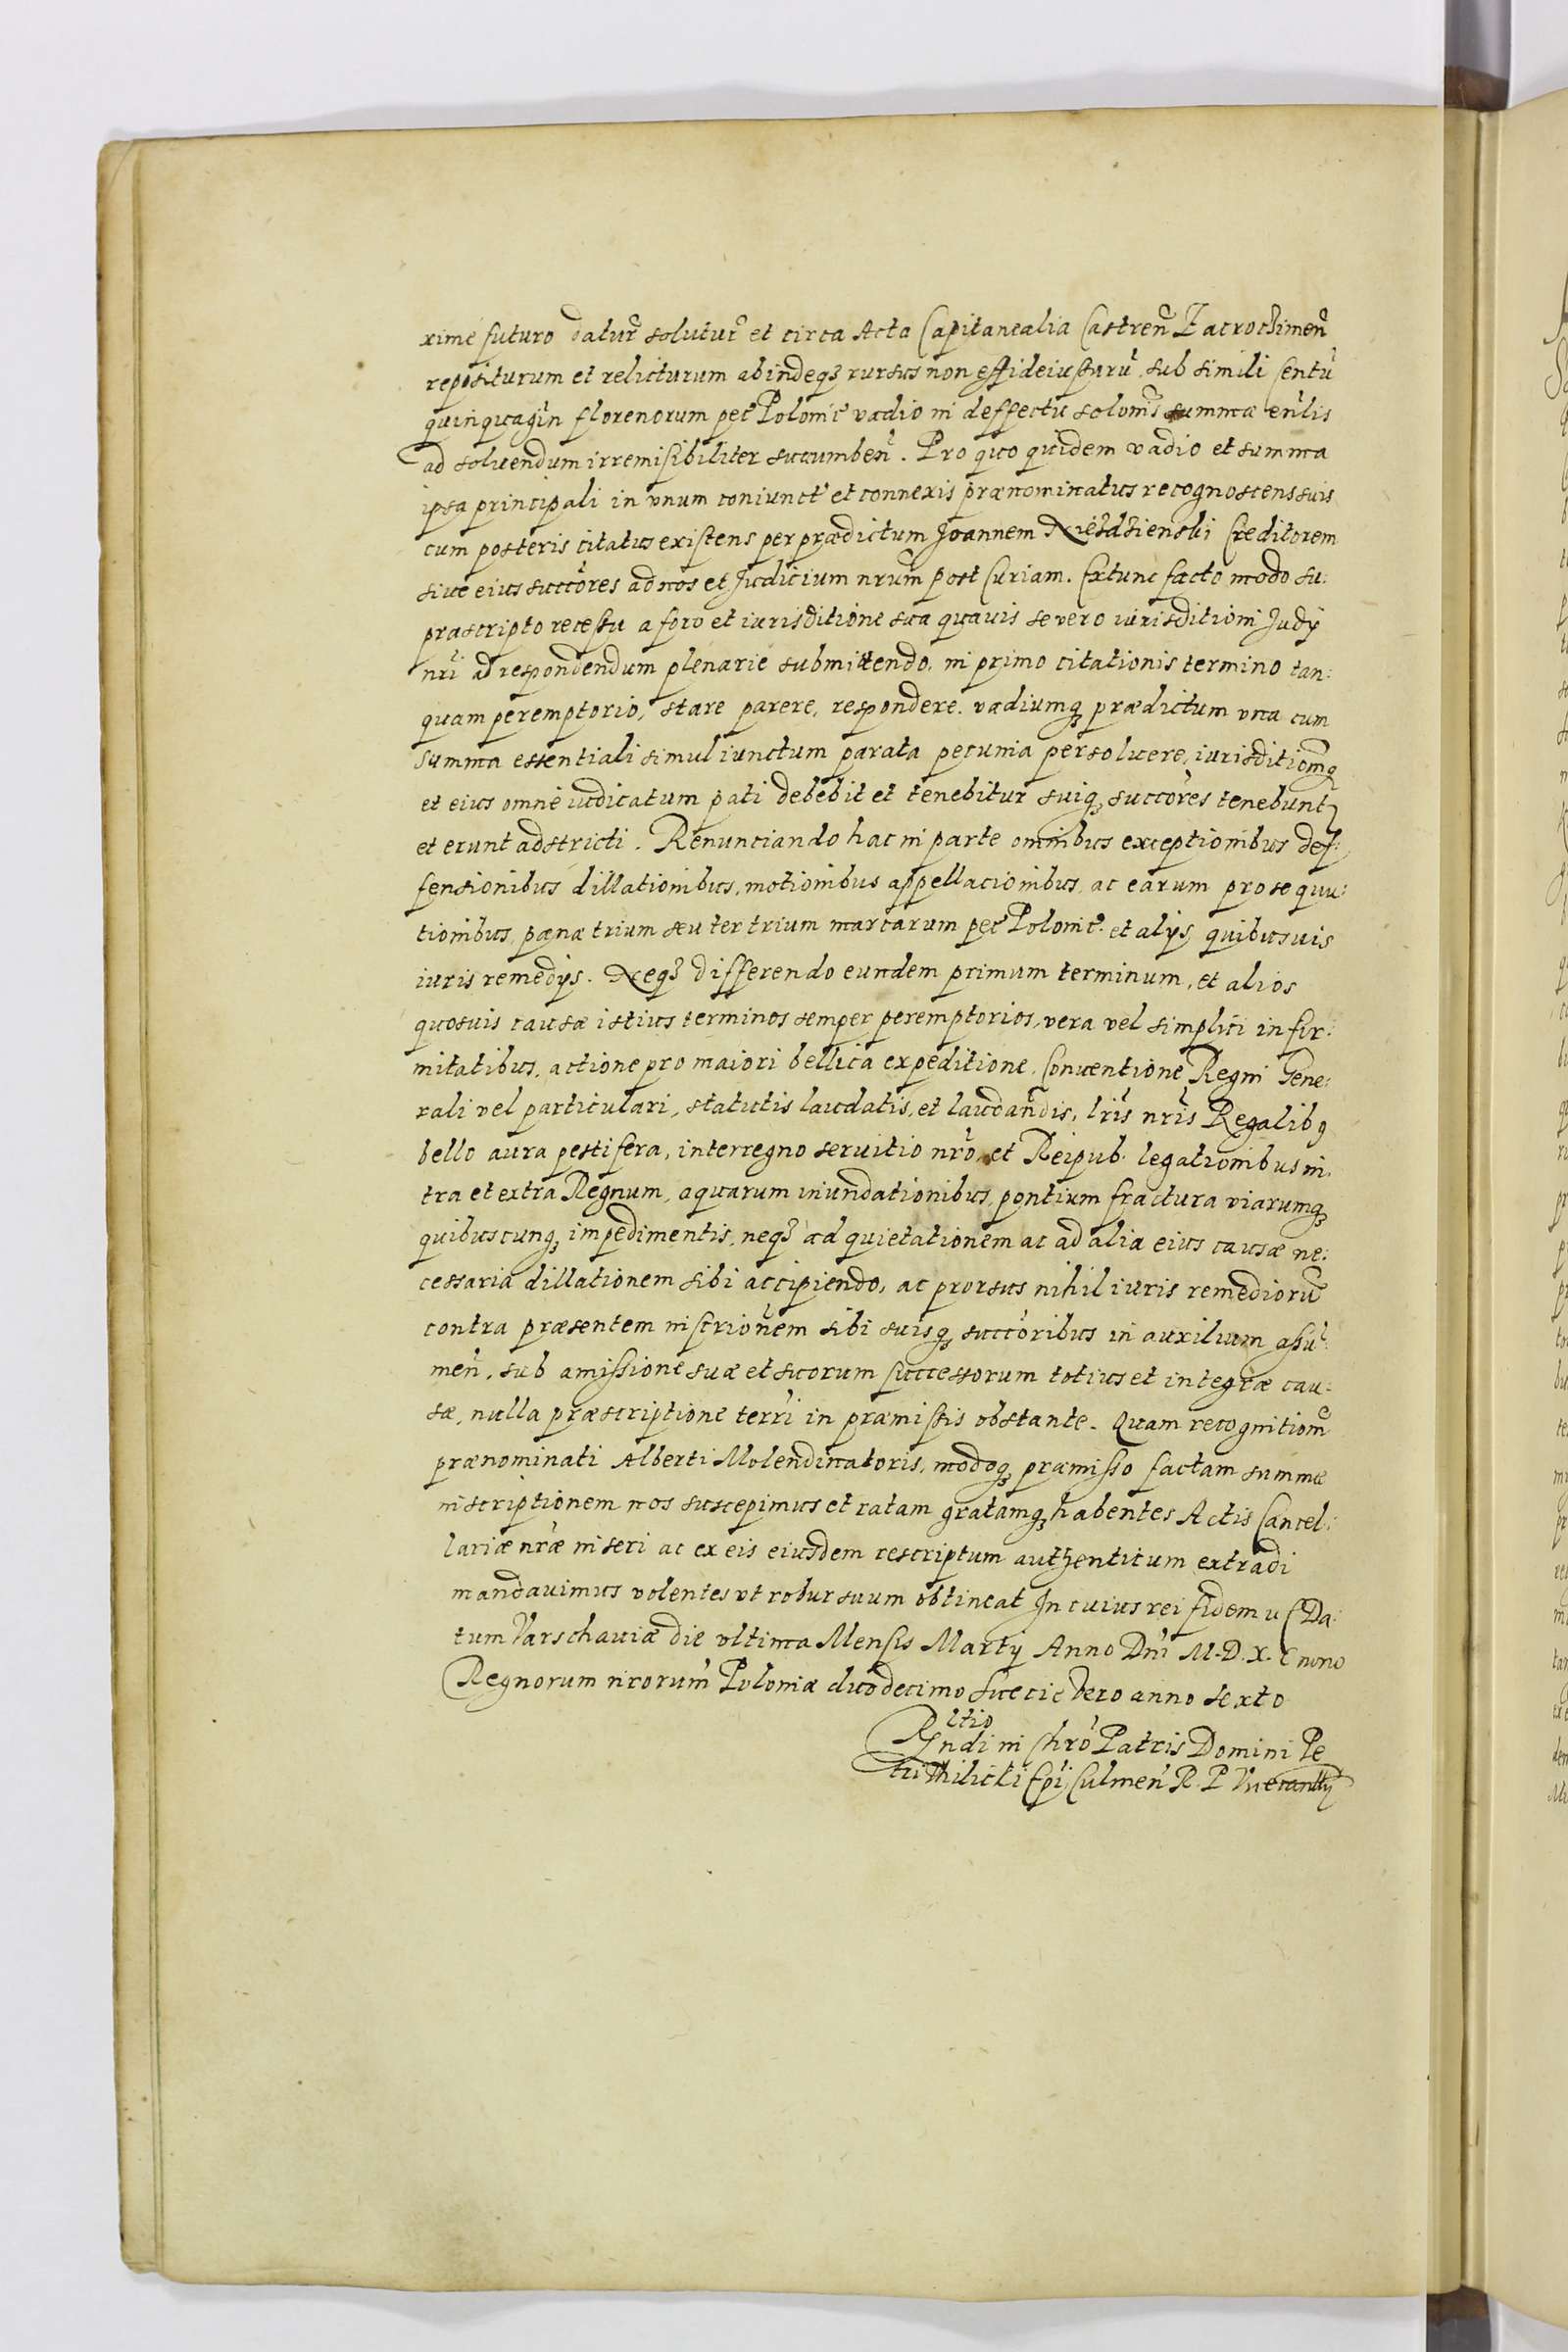 xime futuro datur̃ solutur̃ et circa Acta Capitanealia Castren̄ Zacrocimen̄
repositurum et relicturum abindeqȝ rursus non effideiussurū sub simili Centū
quinquagin̄ florenorum pec̄ Polonic̄ vadio in deffectu solonis̄ summæ en̄lis
ad soluendum irremisibiliter succumben̄. Pro quo quidem vadio et summa
ipsa principali in vnum coniunct̄ et connexis prænominatus recognoscens suis
cum posteris citatus existens per prædictum Joannem Niezdzienski Creditorem
siue eius succōres ad nos et Judicium nrūm post Curiam. Extunc facto modo su:
prascripto recessu a foro et iurisditione sua quauis se vero iurisditioni Judÿ
nrī ad respondendum plenarie submittendo, in primo citationis termino tan:
quam peremptorio, stare parere, respondere. vadiumqȝ prædictum vna cum
summa essentiali simul iunctum parata pecunia persoluere, iurisditionēqȝ
et eius omnē iudicatum pati debebit et tenebitur suiqȝ succōres tenebuntȝ
et erunt adstricti. Renunciando hac in parte omnibus exceptionibus def:
fensionibus dillationibus, motionibus appellacionibus, ac earum prosequu:
tionibus, pænæ trium seu ter trium marcarum pec̄ Polonic̄. et alÿs quibusuis
iuris remedÿs. Neqȝ differendo eundem primum terminum, et alios
quosuis causæ istius terminos semper peremptorios, vera vel simplici infir:
mitatibus, actione pro maiori bellica expeditione, Conuentione Regni Gene:
rali vel particulari, statutis laudatis, et laudandis, lrīs nrīs Regalibȝ
bello aura pestifera, interregno seruitio nrō, et Reipub. legationibus in:
tra et extra Regnum, aquarum inundationibus, pontium fractura viarumqȝ
quibuscunqȝ impedimentis, neqȝ ad quietationem ac ad alia eius causæ ne:
cessaria dillationem sibi accipiendo, ac prorsus nihil iuris remediorū
contra præsentem inscrionēm sibi suisqȝ succōribus in auxilium assū:
men̄, sub amissione suæ et suorum successorum totius et integræ cau:
sæ, nulla præscriptione terrī in præmissis obstante. Quam recognitionē
prænominati Alberti Molendinatoris, modoqȝ præmisso factam summæ
inscriptionem nos suscepimus et ratam gratamqȝ habentes Actis Cancel:
lariæ nrāe inseri ac ex eis eiusdem rescriptum authenticum extradi
mandauimus volentes vt robur suum obtineat In cuius rei fidem u C Da:
tum Varschauiæ die vltima Mensis Martÿ Anno Dnī M. D. X. C nono
Regnorum nrorūm Poloniæ duodecimo Suecie vero anno sexto
Rltio
Rndi in Chrō Patris Domini Pe
tri Tilicki Epī Culmen̄ R. P. Vicecancellÿ